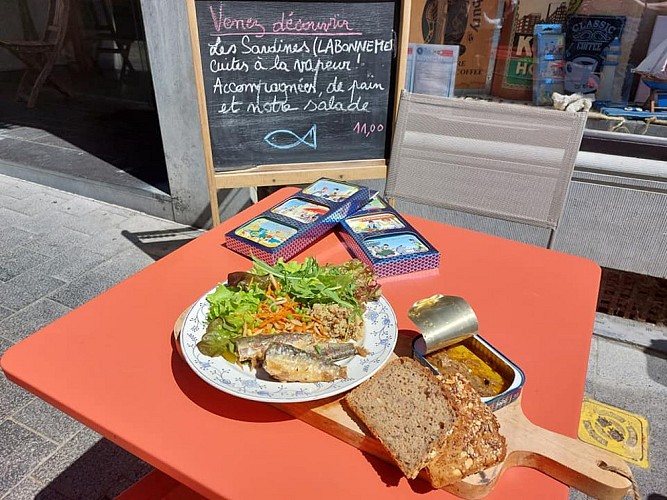 Venez découvrir
Les Sardines (LABONNEMER)
cuites à la vapeur !
Accompagnées, de pain
et notre salade
11,00
CLASSIC
COFFEE